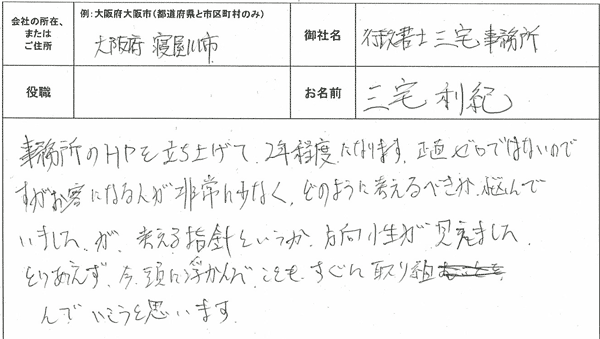 会社の所在、
または
ご住所
例: 大阪府大阪市（都道府県と市区町村のみ）
大阪府 寝屋川市
御社名
行政書士三宅事務所
役職
お名前
三宅 利紀
事務所のHPを立ち上げて、2年程度になります。正直ゼロではないので
すがお客になる人が非常に少なく、どのように考えるべきか、悩んで
いました、が、考える指針というか、方向性が見えました。
とりあえず、今、頭に浮かんでことも、すぐに取り組
んでいこうと思います。